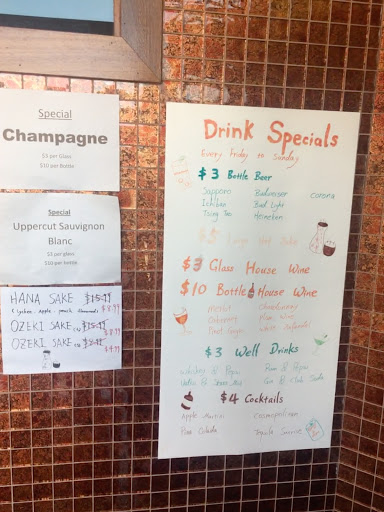 Special
Champagne
$3 per Glass
$10 per Bottle
Special
Uppercut Sauvignon
Blanc
$3 per glass
$10 per bottle
HANA SAKE $15.99
(Lychee, apple, peach, Flavored) $8.99
OZEKI SAKE $15.99
OZEKI SAKE
$4.99
Drink Specials
Every Friday to Sunday
$3 Bottle Beer
Sapporo Budweiser corona
Ichiban Bud Light
Tsing Tao Heineken
$5 Large Hot Sake
$3 Glass House Wine
$10 Bottle House Wine
Merlot Chardonnay
Cabernet Plum Wine
Pinot Grigio White Zinfandel
$3 Well Drinks
Whiskey @ Pepsi Rum @ Pepsi
Vodka @ Gin @ Club Soda
$4 Cocktails
Apple Martini Cosmopolitan
Pina Colada Tequila Sunrise